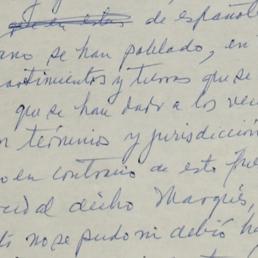 de español
se han poblado, en
y tierras que se
que se han dado a los ve
términos y jurisdicción
en contrario de esto fue
al dicho Marqués,
no se pudo ni debió ha